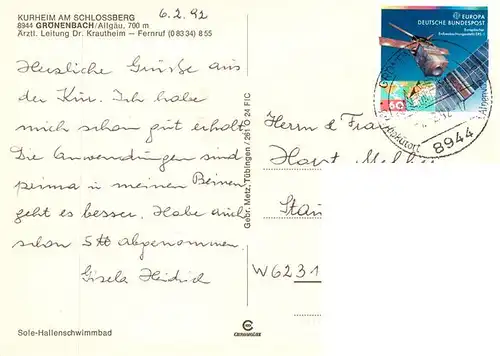 KURHEIM AM SCHLOSSBERG
8944 GRÖNENBACH/Allgäu, 700 m
Ärztl. Leitung Dr. Krautheim — Fernruf (0 83 34) 8 55
6.2.92
Herzliche Grüße aus
der Kur. Ich habe
mich schon gut erholt
Die Anwendungen sind
prima in meinen Beinen
geht es besser. Habe auch
schon 5 ℔ abgenommen.
Gisela Heidrich
Sole-Hallenschwimmbad
Gebr. Metz, Tübingen / 261 O 24 FIC
EUROPA
DEUTSCHE BUNDESPOST
60
8944
Herrn & Fra
Horst
W 6231